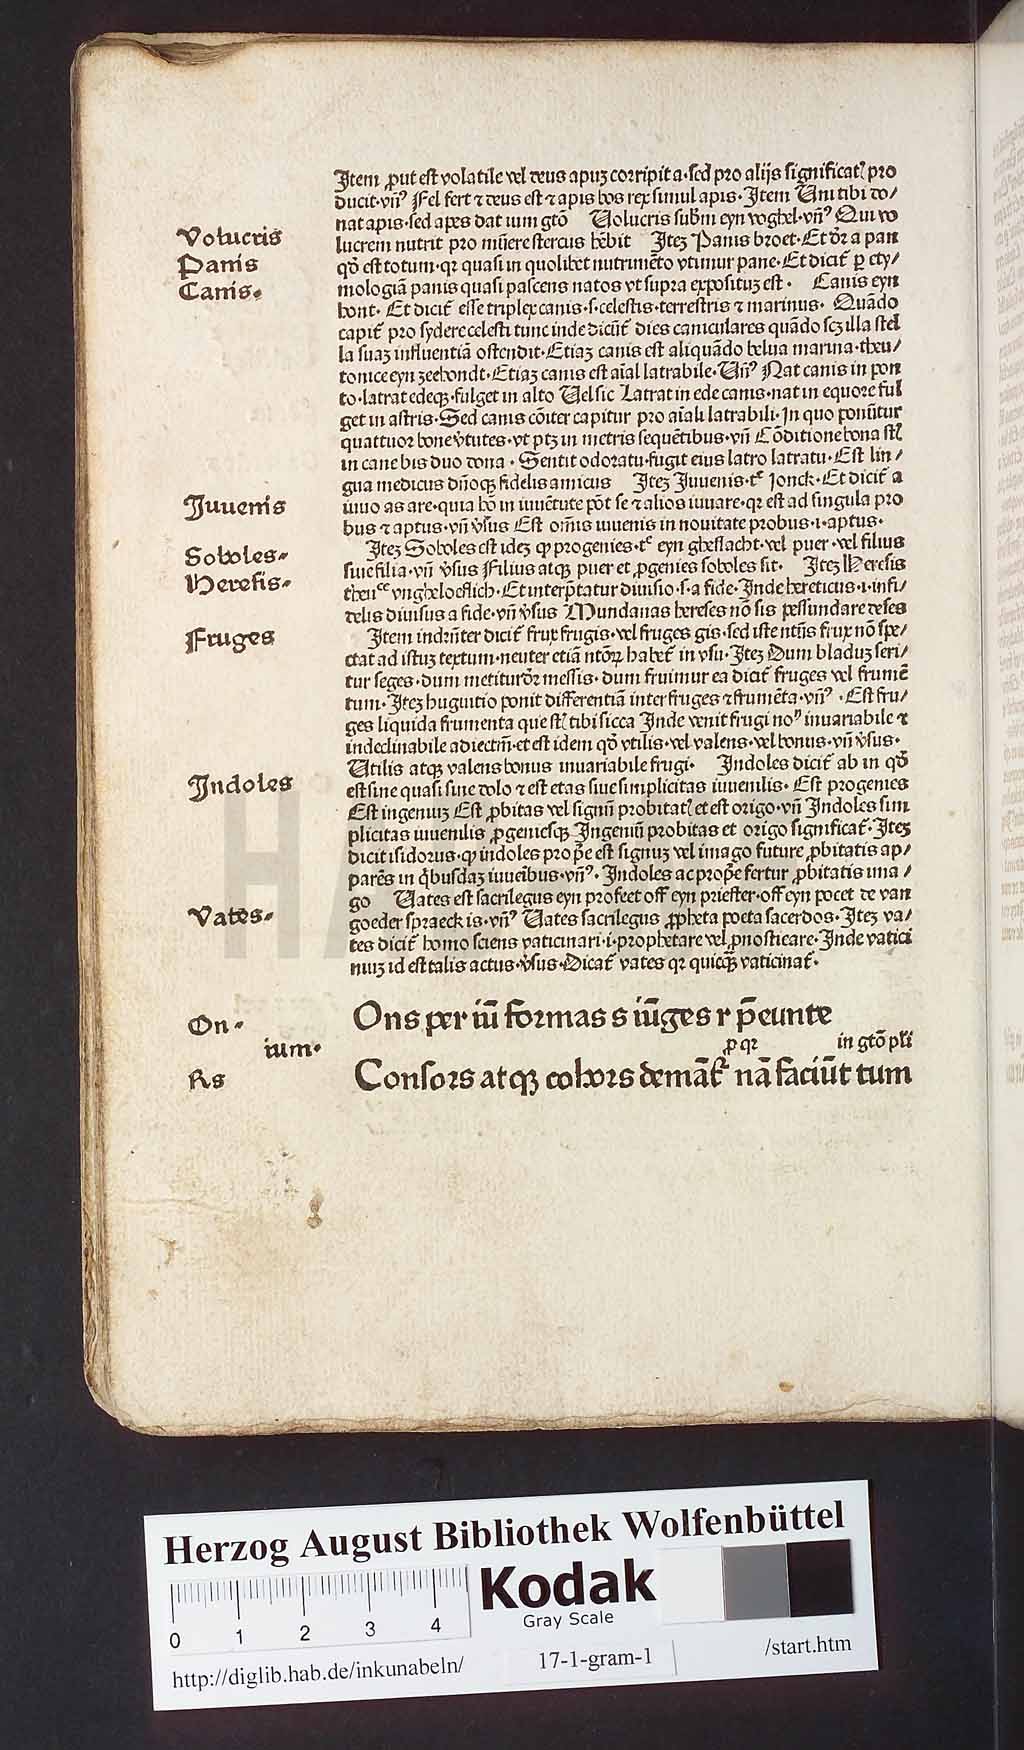 Item ꝓut est volatile vel deus apuʒ corripit a·sed pro alijs significatͥ pro
ducit·vñ⁹ Fel fert ⁊ deus est ⁊ apis bos rex simul apis· Item Uni tibi do/
nat apis·sed apes dat ium gtō Uolucris subm̄ eyn voghel·vñ⁹ Qui vo
Volucris
lucrem nutrit pro mūere stercus hēbit Iteʒ Panis broet·Et dr̄ a pan
Panis
qđ est totum·qr quasi in quolibet nutrimēto vtimur pane·Et dicit̄ ꝑ ety/
Canis·
mologiā panis quasi pascens natos vt supra exposituʒ est· Canis eyn
hont· Et dicit̄ esse triplex canis·s·celestis·terrestris ⁊ marinus· Quādo
capit̄ pro sydere celesti tunc inde dicūt̄ dies caniculares quādo scʒ illa stel
la suaʒ influentiā ostendit·Etiaʒ canis est aliquādo belua marina·theu/
tonice eyn zeehondt·Etiaʒ canis est aīal latrabile·Uñ⁹ Nat canis in pon
to·latrat edeqʒ·fulget in alto Uel sic Latrat in ede canis·nat in equore ful
get in astris·Sed canis cōiter capitur pro aīali latrabili·In quo ponūtur
quattuor bone v̄tutes·vt ptʒ in metris sequētibus·vñ Cōditione bona st̄
in cane bis duo dona · Sentit odoratu·fugit eius latro latratu·Est lin/
gua medicus dñoqʒ fidelis amicus Iteʒ Iuuenis·tᶜ Jonck·Et dicit̄ a
Juuenis
iuuo as are·quia hō in iuuētute pōt se ⁊ alios iuuare·qr est ad singula pro
bus ⁊ aptus·vñ v̄sus Est om̄is iuuenis in nouitate probus·i·aptus·
Iteʒ Soboles est ideʒ qꝫ progenies·tᶜ eyn gheslacht·vel puer·vel filius
Soboles·
siue filia·vñ v̄sus Filius atqʒ puer et ꝓgenies soboles sit· Iteʒ Heresis
Heresis·
theuᶜᵉ vngheloeflich·Et interp̄tatur diuisio·s·a fide·Inde hereticus·i·infi/
delis diuisus a fide·vñ v̄sus Mundanas hereses nō sis pessundare deses
Fruges
Item indrn̄ter dicit̄ frux frugis·vel fruges gis·sed iste ntūs frux nō spe/
ctat ad istuʒ textum·neuter etiā ntōꝝ habet̄ in vsu·Iteʒ Dum bladuʒ seri/
tur seges·dum metitur dr̄ messis·dum fruimur ea dicit̄ fruges vel frumē
tum·Iteʒ huguitio ponit differentiā inter fruges ⁊ frumēta·vñ⁹·Est fru/
ges liquida frumenta que st̄ tibi sicca Inde venit frugi noᵐ inuariabile ⁊
indeclinabile adiectm̄·et est idem qđ vtilis·vel valens·vel bonus·vñ v̄sus·
Utilis atqʒ valens bonus inuariabile frugi· Indoles dicit̄ ab in qđ
Indoles
est sine quasi sine dolo ⁊ est etas siue simplicitas iuuenilis· Est progenies
Est ingeniuʒ Est ꝓbitas vel signū probitatͥ et est origo·vñ Indoles sim
plicitas iuuenilis ꝓgeniesqʒ Ingeniū probitas et origo significat̄·Iteʒ
dicit isidorus·qꝫ indoles prop̄e est signuʒ vel imago future ꝓbitatis ap/
parēs in qͥbusdaʒ iuuenibus·vñ⁹·Indoles ac prop̄e fertur ꝓbitatis ima/
go Uates est sacrilegus eyn profeet off eyn priester·off eyn poeet de van
Vates·
goeder spraeck is·vñ⁹ Uates sacrilegus ꝓpheta poeta sacerdos·Iteʒ va/
tes dicit̄ homo sciens vaticinari·i·prophetare vel ꝓnosticare·Inde vatici
niuʒ id est talis actus·v̄sus·Dicat̄ vates qr quicqʒ vaticinat̄·
On·
Ons per iū formas s iūges r p̄eunte
ium·
ꝓ qr in gtō pli
Rs
Consors atqʒ cohors demāt̄ nā faciūt tum
Herzog August Bibliothek Wolfenbüttel
Kodak
Gray Scale
0 1 2 3 4
http://diglib.hab.de/inkunabeln/ 17-1-gram-1 /start.htm